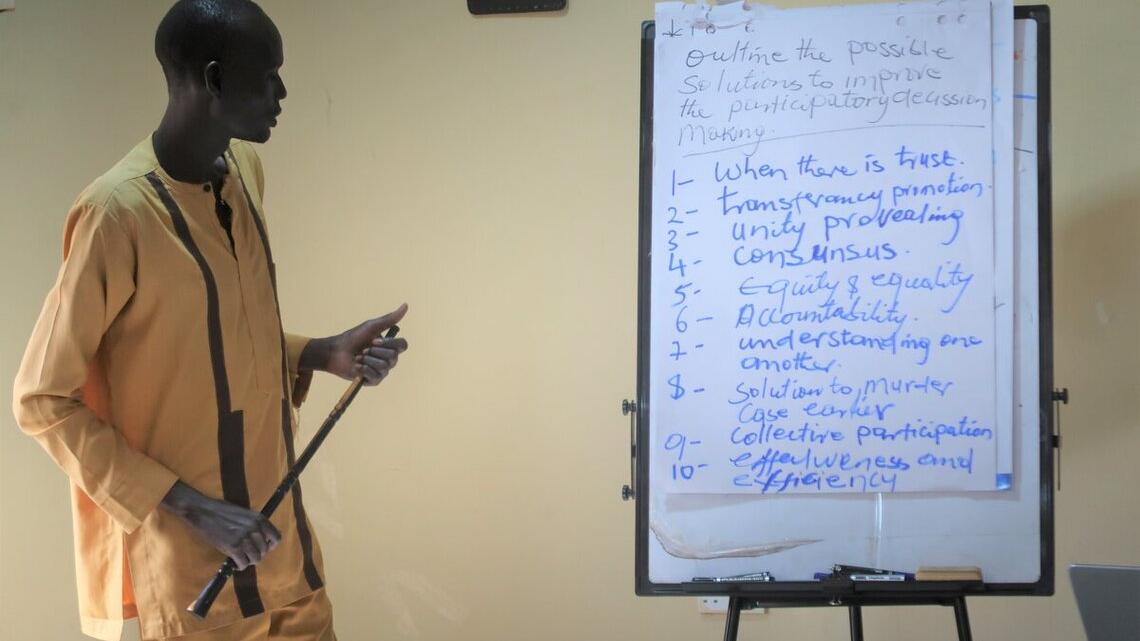 Outline the possible
solutions to improve
the participatory decission
Making.
1- When there is trust.
2- transferancy promotion.
3- unity provealing
4- consunsus.
5- Equity & equality
6- Accountability.
7- understanding one
another.
8- Solution to murder
case earlier
9- collective participation
10- effectiveness and
efficiency